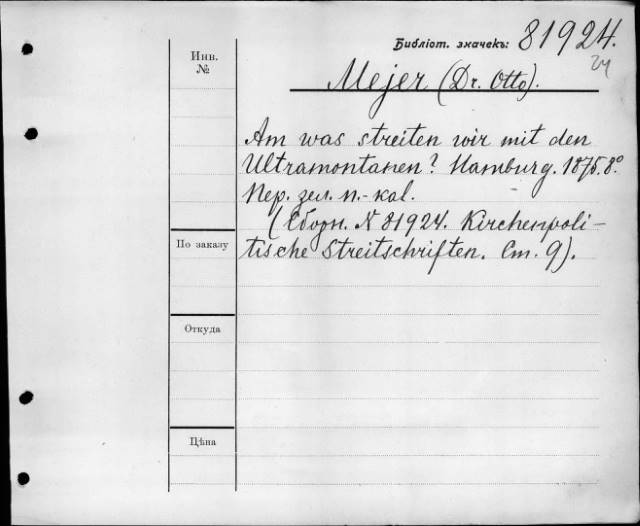 Библіот. значекъ: 81924.
24
Инв. №
Mejer (Dr. Otto).
Am was streiten wir mit den
Ultramontanen? Hamburg. 1875. 8º
Пер. зел. п.-кал.
(Сборн. N 81924. Kirchenpoli-
tische Streitschriften. Ст. 9).
По заказу
Откуда
Цѣна